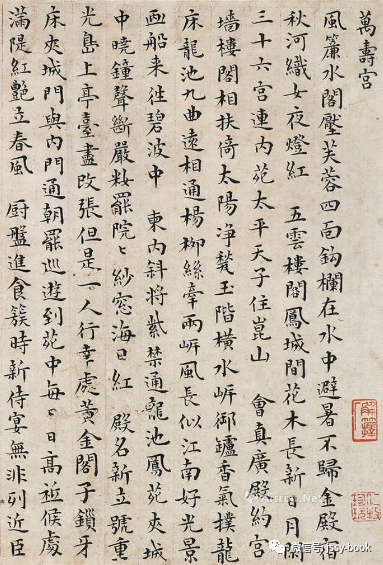 萬壽宮
風簾水閣壓芙蓉四面鈎欄在水中避暑不歸金殿宿
秋河織女夜燈紅　五雲樓閣鳳城間花木長新日月閑
三十六宮連内苑太平天子住崑山　會真廣殿約宮
墻樓閣相扶倚太陽净甃玉階横水岍御鑪香氣撲龍
床龍池九曲遠相通楊柳絲牽兩岍風長似江南好光景
畫船来往碧波中　東内斜將紫禁通龍池鳳苑夾城
中曉鐘聲斷嚴粧罷院〻紗窓海日紅　殿名新立號重
光島上亭臺盡改張但是一人行幸處黃金閣子鎖牙
床夾城門與内門通朝罷巡遊到苑中每〻日高祗候處
滿隄紅艷立春風　厨盤進食簇時新侍宴無非列近臣
微信号:jscy-book